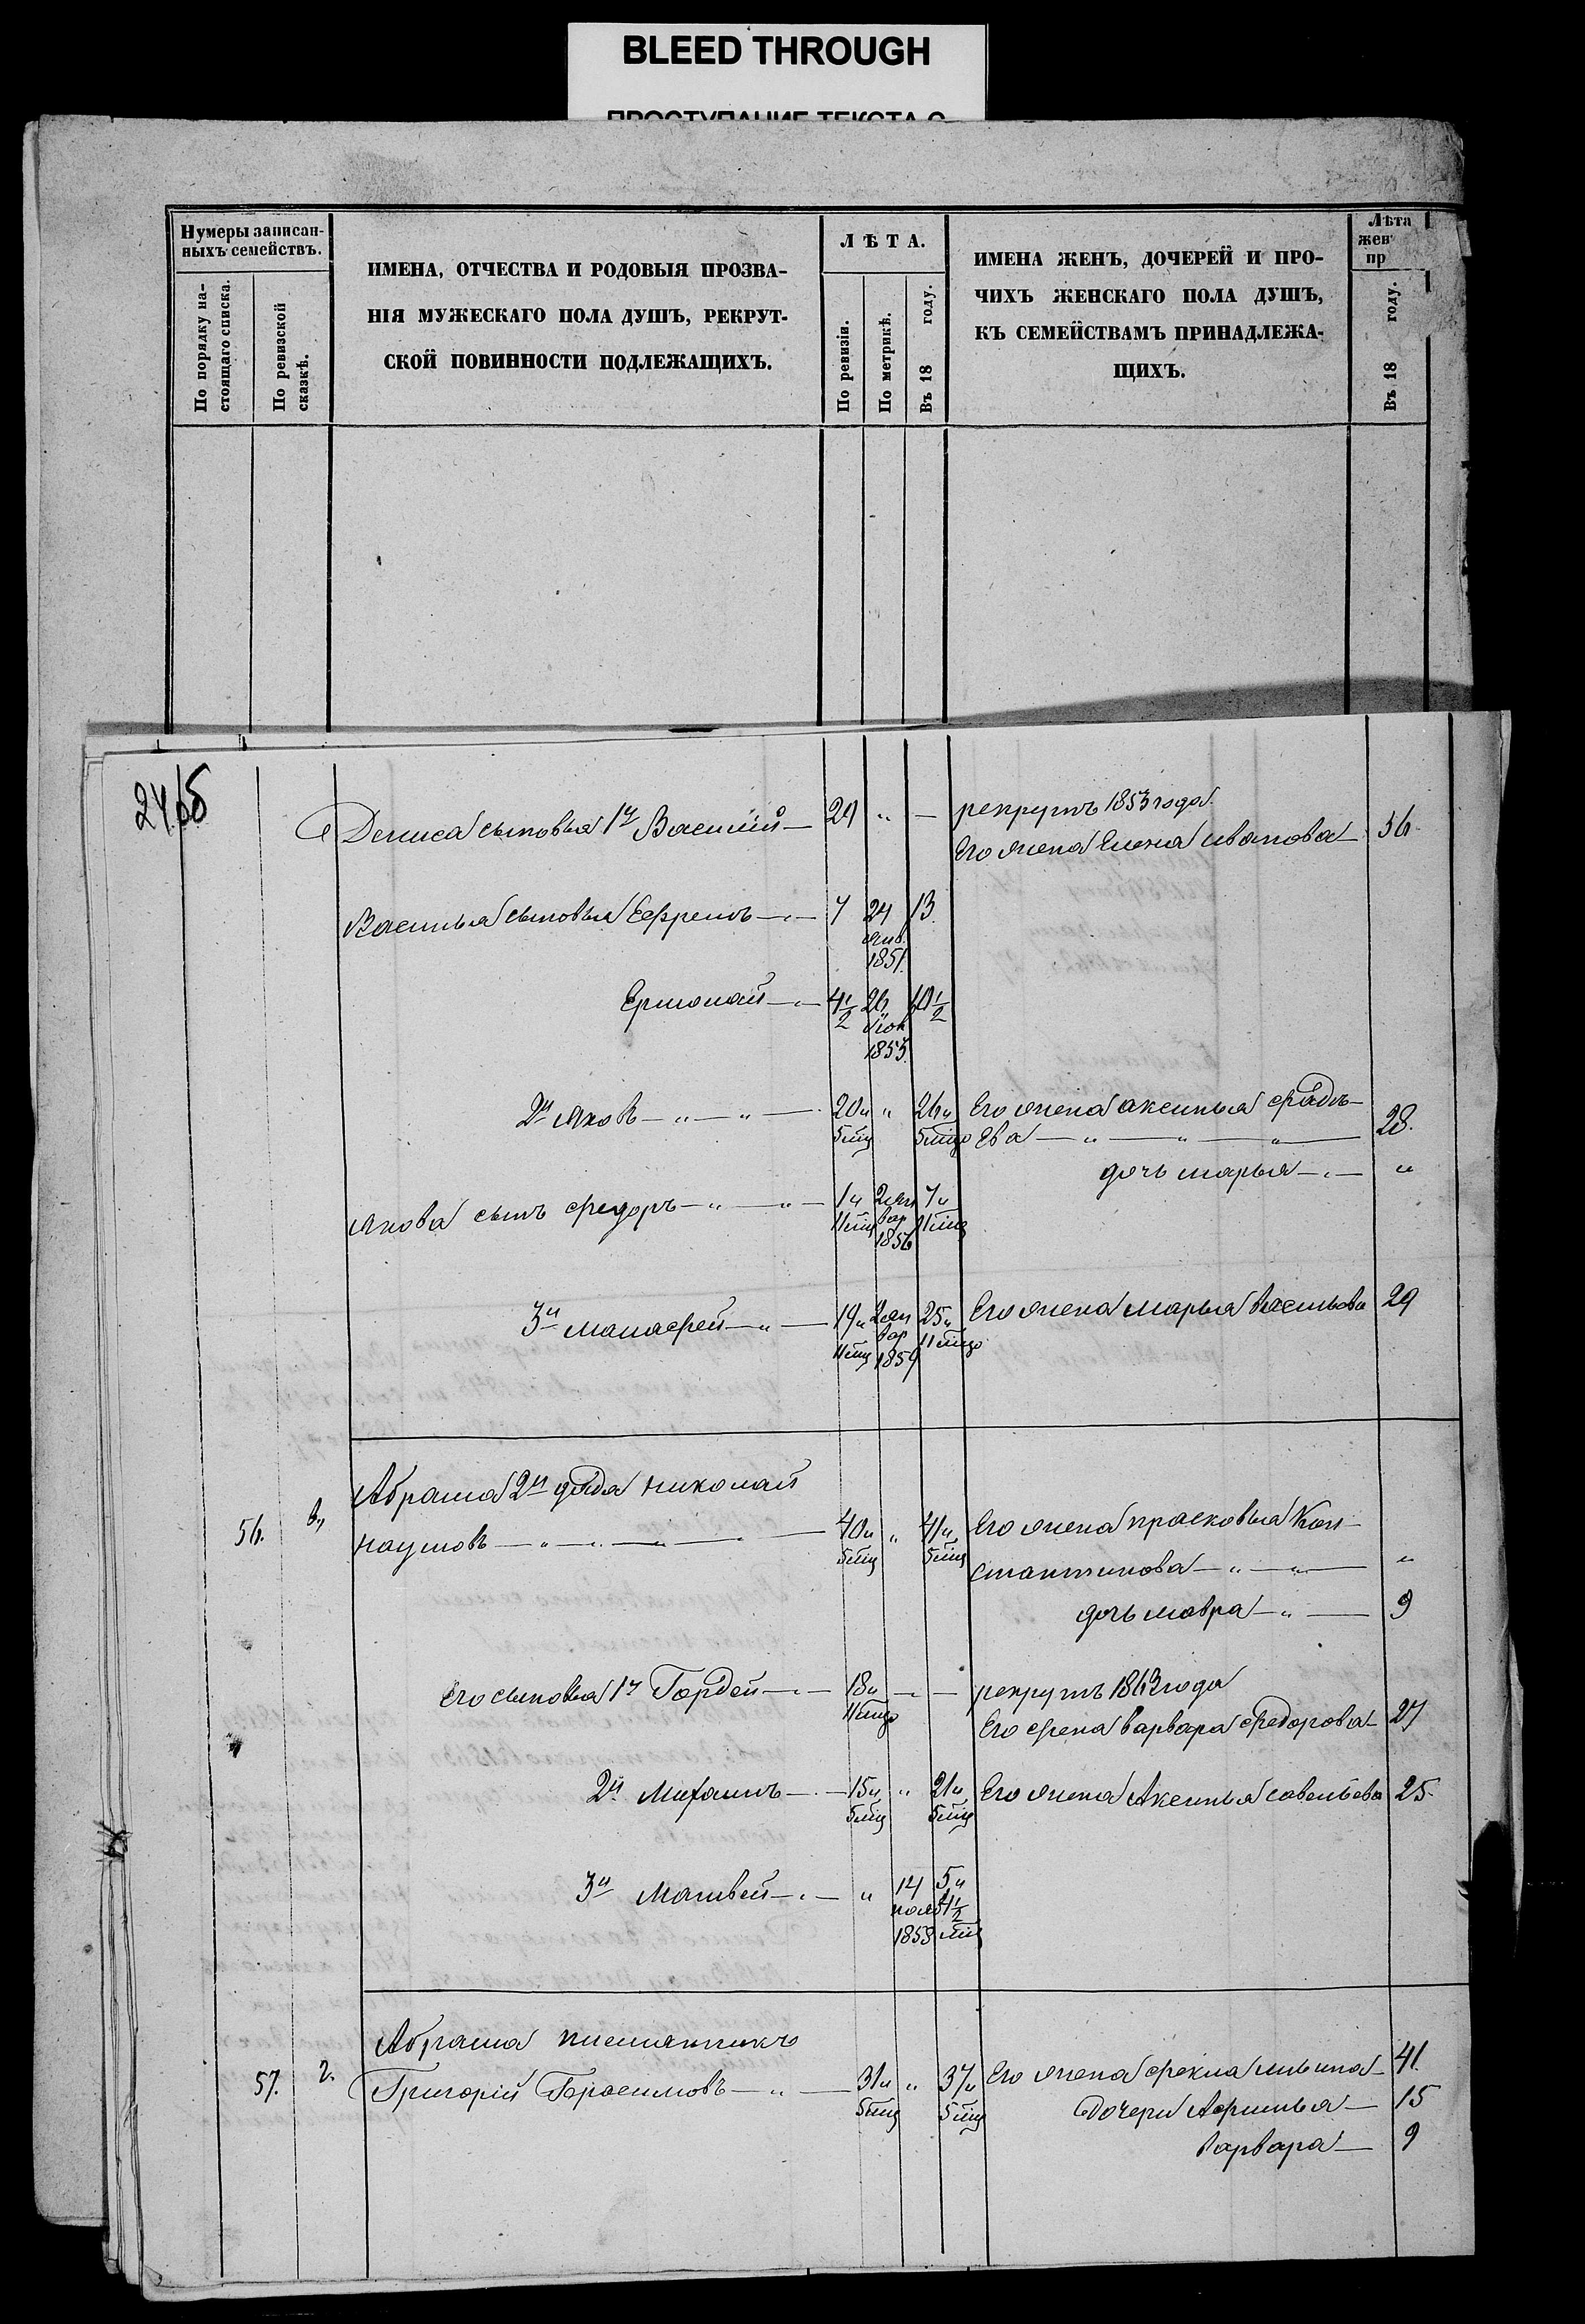 BLEED THROUGH
ПРОСТУПАНИЕ ТЕКСТА С
Нумеры записан-
ныхъ семействъ.
По порядку на-
стоящаго списка.
По ревизской
сказкѣ.
ИМЕНА, ОТЧЕСТВА И РОДОВЫЯ ПРОЗВА-
НІЯ МУЖЕСКАГО ПОЛА ДУШЪ, РЕКРУТ-
СКОЙ ПОВИННОСТИ ПОДЛЕЖАЩИХЪ.
ЛѢТА.
По ревизіи.
По метрикѣ.
Въ 18 году.
ИМЕНА ЖЕНЪ, ДОЧЕРЕЙ И ПРО-
ЧИХЪ ЖЕНСКАГО ПОЛА ДУШЪ,
КЪ СЕМЕЙСТВАМЪ ПРИНАДЛЕЖА-
ЩИХЪ.
Лѣта
жен
пр
Въ 18 году.
Дениса сыновья 1й Василий — 29 „ — рекрутъ 1853 года
Его жена Елена иванова — 36
Василья сыновья Ефремъ — 7 24 13
янв.
1851.
Ермолай — 4 1/2 26 10 1/2
1853.
2й яковъ — „ — „ — 20 „ „ 26 „ Его жена аксинья фадѣ-
5 мц 5 мцо ева — „ — „ — „ — 28.
дочь марья — „ — „
якова сынъ федоръ — „ — „ — 1 „ 2 ян 7 „
11 мц вар 11 мц
1856
3й малафей — „ — 19 „ 2 ян 25 „ Его жена марья васильева 29
11 мц вар 11 мцо
1859
Абрама 2й дядя николай
56. в., наумовъ — „ — „ — „ — 40 „ „ 41 „ Его жена прасковья Кон-
5 мц 5 мц стантинова — „ — „ — „
дочь мавра — „ — 9
Его сыновья 1й Гордей — „ — 18 „ — „ — рекрутъ 1863 года
11 мцо Его жена варвара федорова — 27
2й Михаилъ — „ — 15 „ „ 21 „ Его жена Аксинья савельева 25
5 мц 5 мц
3й Матвей — „ — „ 14 5 „
нояб 1/2
1858 мц
Абрама племянникъ
57. г. Григорій Герасимовъ — „ — 31 „ „ 37 „ Его жена фекла ильина — 41.
5 мц 5 мц Дочери Афимья — 15
варвара — 9